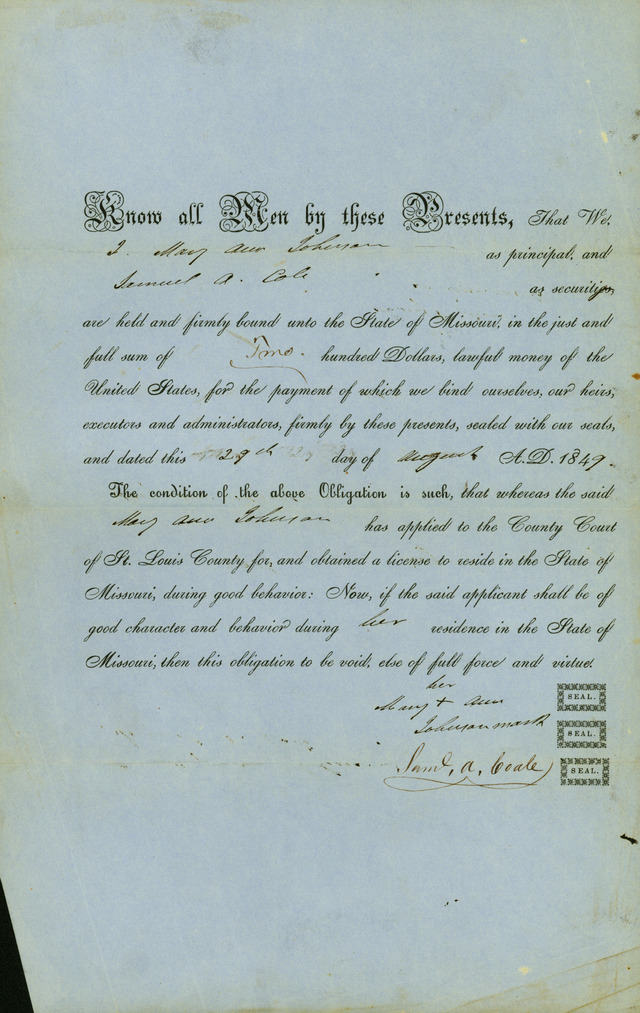 Know all Men by these Presents, That We,
I Mary Ann Johnson as principal, and
Samuel A. Cole as securities,
are held and firmly bound unto the State of Missouri, in the just and
full sum of Two hundred Dollars, lawful money of the
United States, for the payment of which we bind ourselves, our heirs,
executors and administrators, firmly by these presents, sealed with our seals,
and dated this 29th day of August A.D. 1849.
The condition of the above Obligation is such, that whereas the said
Mary Ann Johnson has applied to the County Court
of St. Louis County for, and obtained a license to reside in the State of
Missouri, during good behavior: Now, if the said applicant shall be of
good character and behavior during her residence in the State of
Missouri, then this obligation to be void, else of full force and virtue.
her
Mary + Ann SEAL.
Johnson mark SEAL.
Saml. A. Coale SEAL.